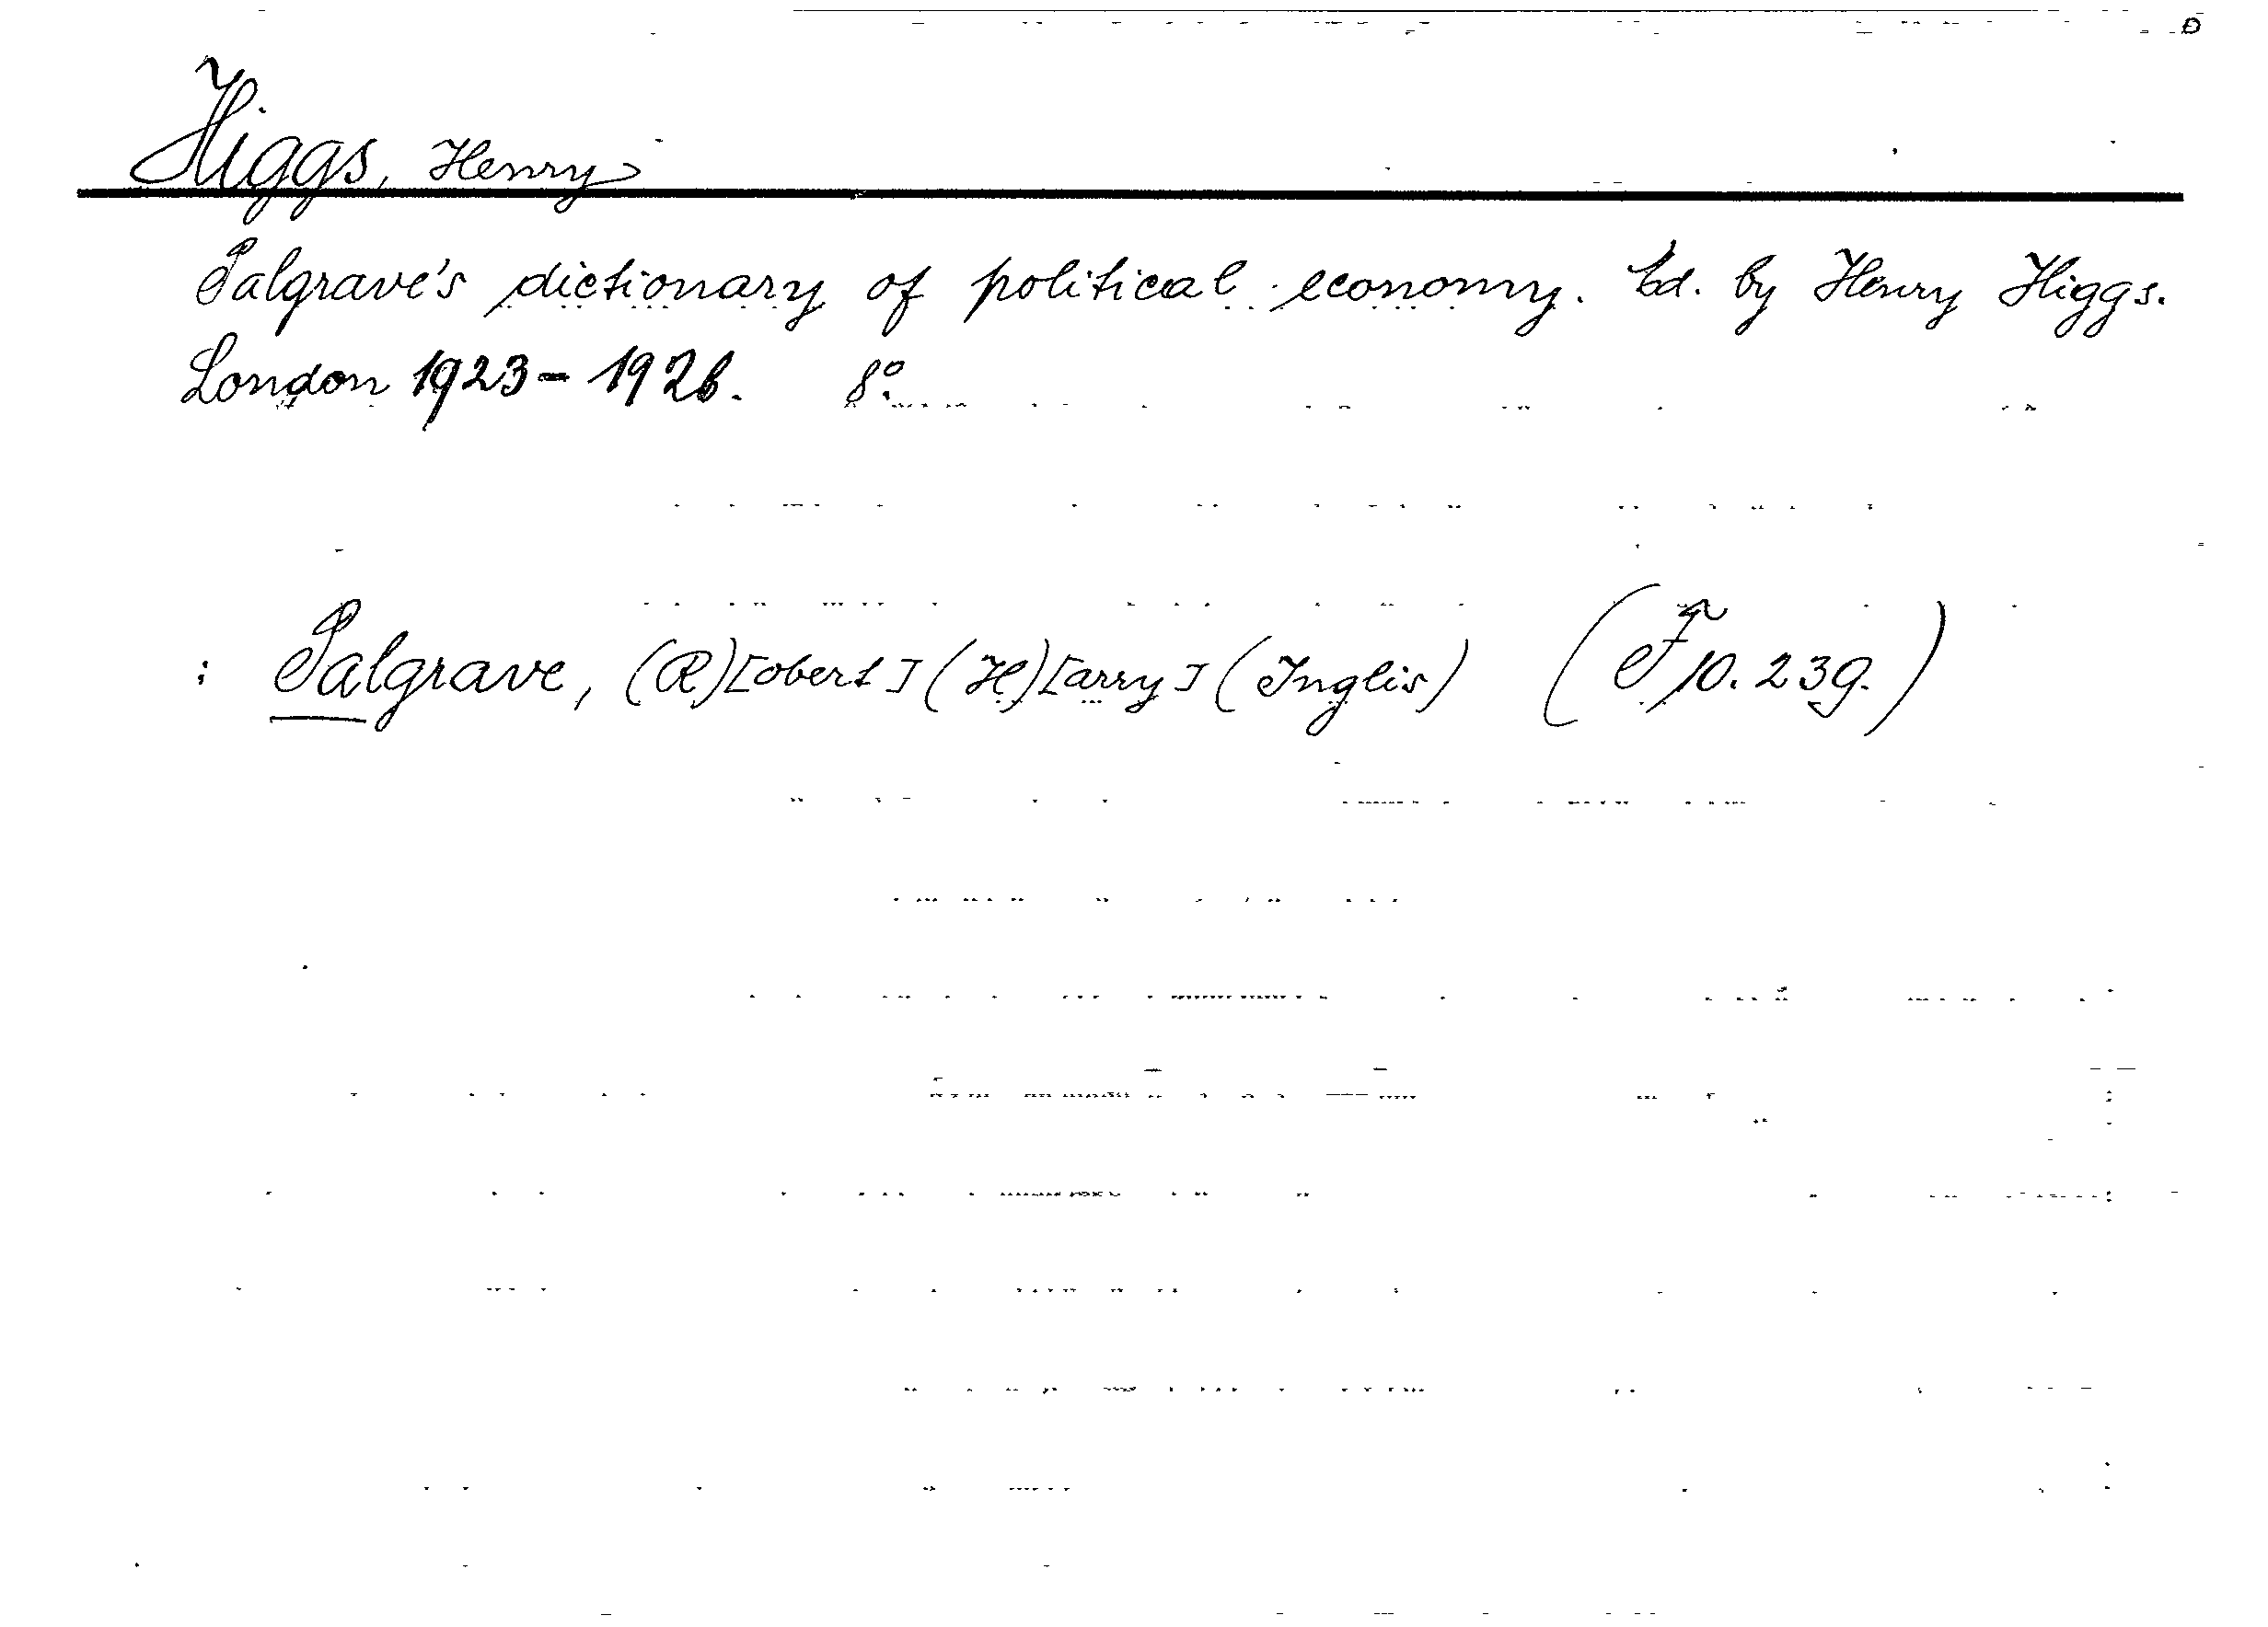 Higgs, Henry
Palgrave's dictionary of political economy. Ed. by Henry Higgs.
London 1923-1926. 8°.
: Palgrave, (R)[obert] (H)[arry] (Inglis) (F 10. 239.)